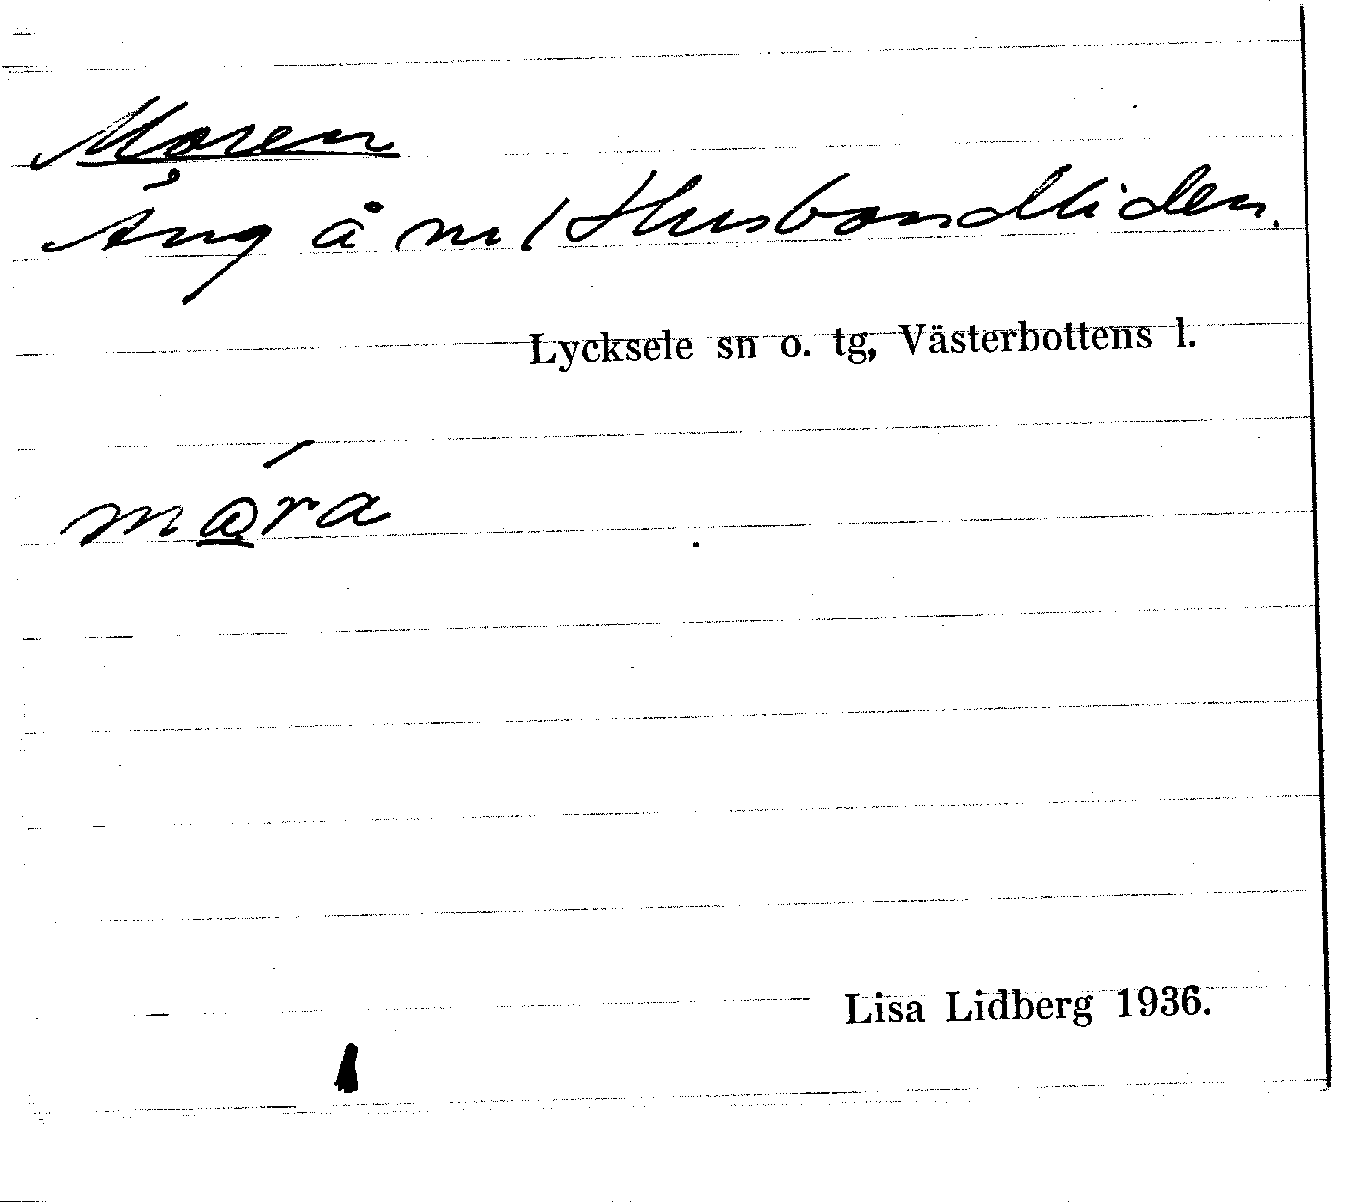 Moren
Äng å nr 1 Husbondliden.
Lycksele sn o. tg, Västerbottens l.
mára
Lisa Lidberg 1936.